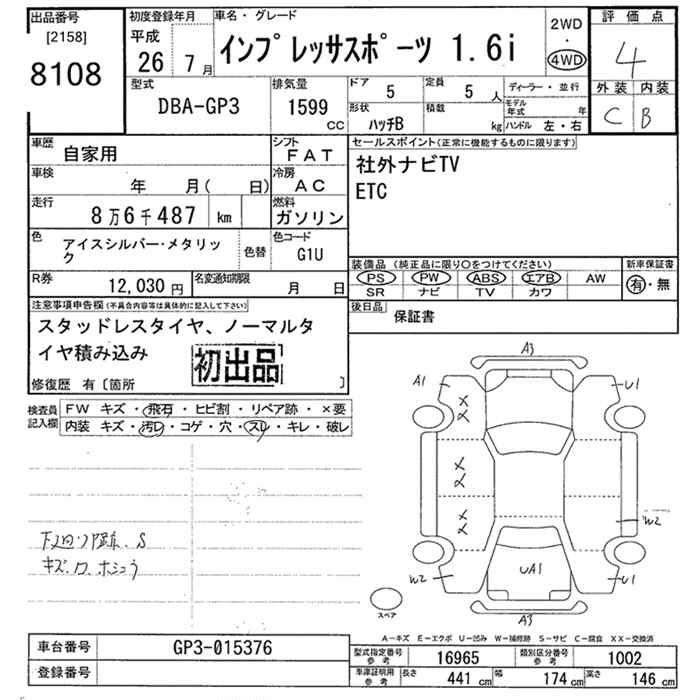 出品番号 [2158] 8108
初度登録年月 平成 26年 7月
車名・グレード インプレッサスポーツ 1.6i
2WD ・ 4WD
評価点 4
外装 内装
C B
型式 DBA-GP3
排気量 1599 CC
ドア 5
定員 5 人
ディーラー・並行
形状 ハッチB
積載 kg
モデル年式 年
ハンドル 左・右
車歴 自家用
シフト FAT
車検 年 月( 日)
冷房 AC
走行 8万6千487 km
燃料 ガソリン
色 アイスシルバー・メタリック
色替
色コード G1U
R券 12,030円
名変通知期限 月 日
セールスポイント(正常に機能するものに限ります)
社外ナビTV
ETC
装備品 (純正品に限り○をつけてください)
PS PW ABS エアB AW
SR ナビ TV カワ
新車保証書
有・無
後日品 保証書
注意事項申告欄(不具合内容等は具体的に記入して下さい)
スタッドレスタイヤ、ノーマルタ
イヤ積み込み
初出品
修復歴 有〔箇所 〕
検査員記入欄
FW キズ・飛石・ヒビ割・リペア跡・×要
内装 キズ・汚レ・コゲ・穴・スレ・キレ・破レ
S
A3
A1
U1
W2
UA1
W2
U1
A3
スペア
A-キズ E-エクボ U-凹み W-補修跡 S-サビ C-腐食 XX-交換済
車台番号 GP3-015376
登録番号
型式指定番号 参考 16965
類別区分番号 参考 1002
車庫証明用 参考 長さ 441 cm 幅 174 cm 高さ 146 cm